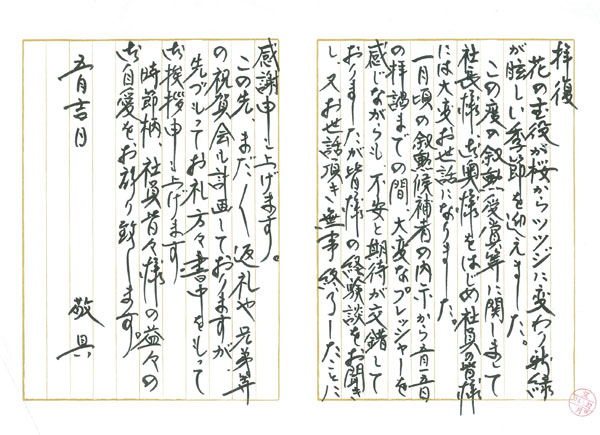 拝復
花の主役が桜からツツジに変わり新緑
が眩しい季節を迎えました。
この度の叙勲受賞等に関しまして
社長様、御奥様をはじめ社員の皆様
には大変お世話になりました。
一月頃の叙勲候補者の内示から五月一五日
の拝謁までの間、大変なプレッシャーを
感じながらも不安と期待が交錯して
おりましたが皆様の経験談をお聞き
し、又お世話頂き無事終了したことに
感謝申し上げます。
この先、まだまだ返礼や兄弟等
の祝賀会も計画しておりますが、
先づもってお礼方々書中をもって
御挨拶申し上げます
時節柄、社員皆々様の益々の
御自愛をお祈り致します。
五月吉日
敬具